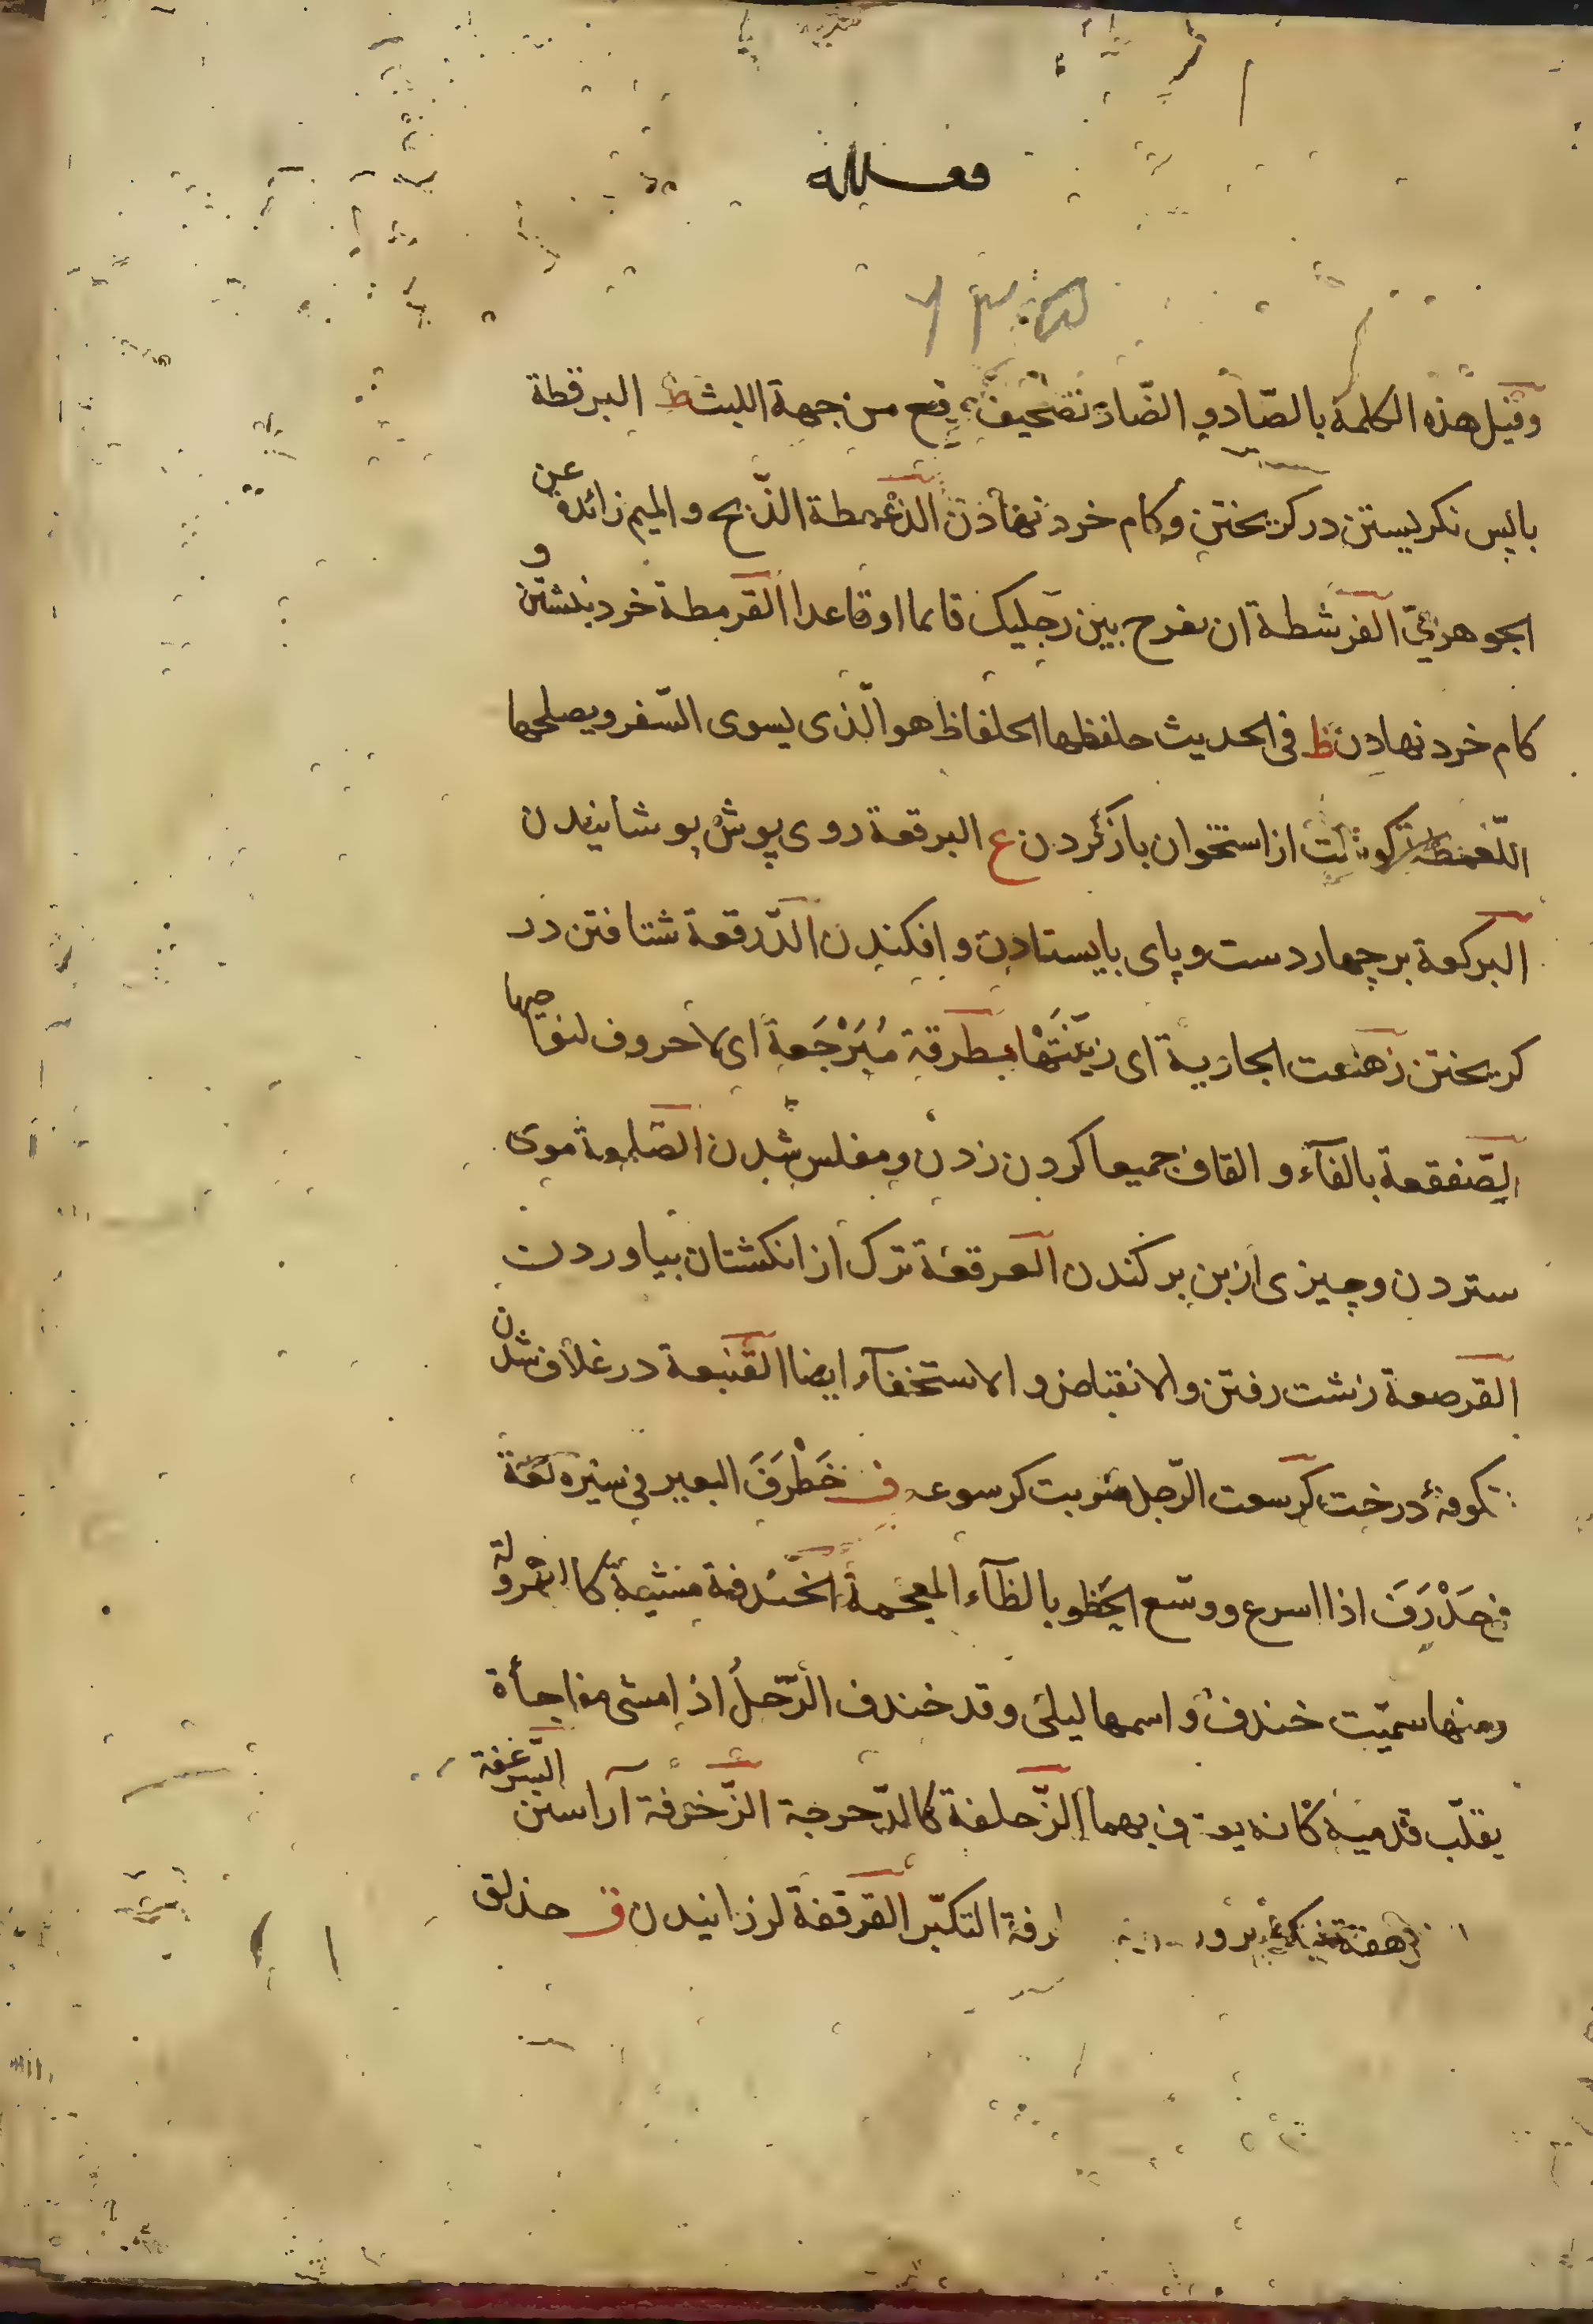 فعللة
وقيل هذه الكلمة بالصّاد و الضّاد تصحيف وقع من جهة الليث ط البرقطة
باپس نكريستن در كريختن و كام خرد نهاذن الذّعمطة الذّبح و الميم زائدة عن
الجوهريّ الفرشطة ان تفرج بين رجليك قائما او قاعدا القرمطة خرد نبشتن و
كام خرد نهادن ظ فى الحديث حلفظها الحلفاظ هو الّذى يسوى السّفر ويصلحها
اللّعمظة كوشت از استخوان باز كردن ع البرقعة روى پوش پوشانيدن
البركعة بر چهار دست و پاى بايستادن و افكندن الدّرقعة شتافتن در
كريختن زهنعت الجارية اى زيّنتها بطرقة مُبَرْجَعة اى لا حروف لنواحيها
الصّنفقعة بالفآء و القاف جميعا كردن زدن و مفلس شدن الصّلمعة موى
ستردن و چيزى از بن بركندن العرقعة ترك از انكشتان بياوردن
القرصعة زشت رفتن و الانقباض و الاستخفآء ايضا القنبعة در غلاف شدن
شكوفهٔ درخت كرسعت الرّجل ضربت كرسوعه ف خَطْرَفَ البعير فى سيره لغة
فى حَذْرَفَ اذا اسرع ووسّع الخطو بالظآء المعجمة الخندفة مشية كالهرولة
ومنها سميّت خندف و اسمها ليلى وقد خندف الرّجلُ اذا مشى مفاجأة
يقلّب قدميه كانه يغرف بهما الزّحلفة كالدّحرجة الزّخرفة آراستن السرعفة
نيكو پرور التكبّر القرقفة لرزانيدن ق حذلق